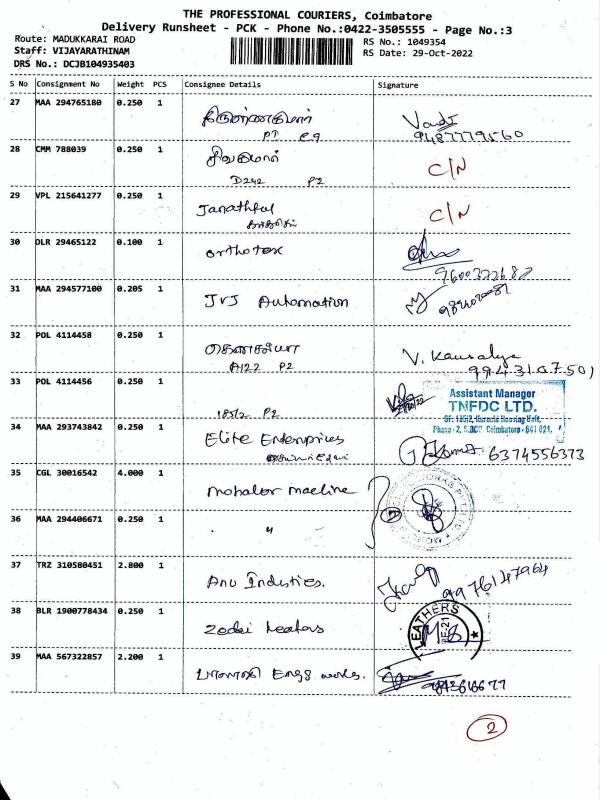 THE PROFESSIONAL COURIERS, Coimbatore
Delivery Runsheet - PCK - Phone No.:0422-3505555 - Page No.:3
Route: MADUKKARAI ROAD
RS No.: 1049354
Staff: VIJAYARATHINAM
RS Date: 29-Oct-2022
DRS No.: DCJB104935403
S No Consignment No Weight PCS Consignee Details Signature
27 MAA 294765180 0.250 1
9487779560
28 CMM 788039 0.250 1 சிவகுமார் C/N
D242 P2
29 VPL 215641277 0.250 1 Janathful C/N
30 DLR 29465122 0.100 1 orthotex
9600372687
31 MAA 294577100 0.205 1 JVJ Automation
32 POL 4114458 0.250 1 கௌசல்யா V. Kausalya
A122 P2 9943107501
33 POL 4114456 0.250 1
185/2 P2
Assistant Manager
TNFDC LTD.
SF: 185/2, Kurachi Housing Unit,
Phase - 2, SIDCO Coimbatore - 641 021.
34 MAA 293743842 0.250 1 Elite Enterprises
6374556373
35 CGL 30016542 4.000 1 mohaler macline
2
36 MAA 294406671 0.250 1 "
37 TRZ 310580451 2.800 1 Anu Industies.
9976147964
38 BLR 1900778434 0.250 1 Zodei Leathers
LEATHERS
39 MAA 567322857 2.200 1 Engg works.
2